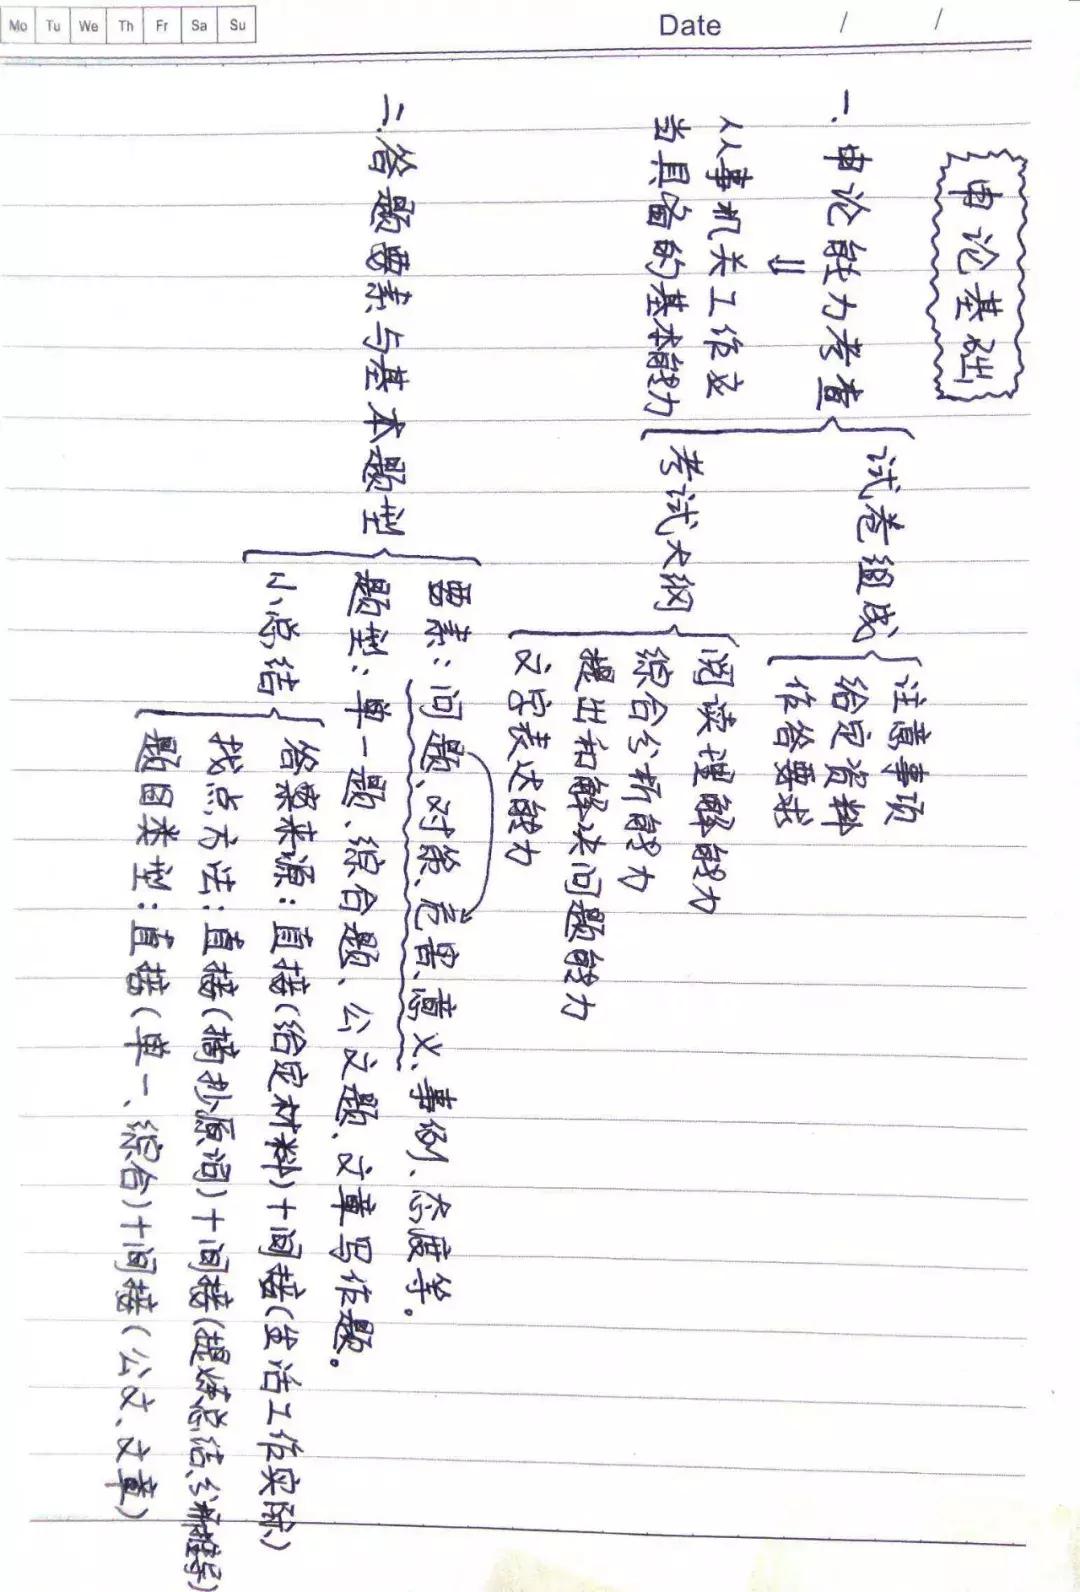 Mo Tu We Th Fr Sa Su
Date / /
申论基础
一.申论能力考查
⇓
从事机关工作应
当具备的基本能力
试卷组成
注意事项
给定资料
作答要求
考试大纲
阅读理解能力
综合分析能力
提出和解决问题能力
文字表达能力
二.答题要素与基本题型
要素:问题、对策、危害、意义、事例、态度等。
题型:单一题、综合题、公文题、文章写作题。
小总结
答案来源:直接(给定材料)+间接(生活工作实际)
找点方法:直接(摘抄原词)+间接(提炼总结、分析推导)
题目类型:直接(单一、综合)+间接(公文、文章)